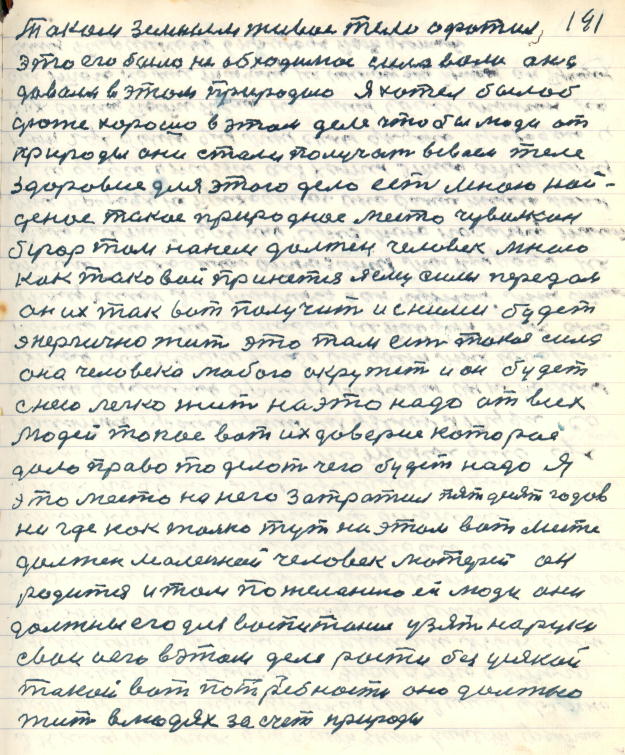 Таком земным живое тело офотил, 191
это его было не обходимое сила воли она
давали в этом природою Я хотел было б
дюже хорошо в этом деле чтобы люди от
природы они стали получат в своем теле
здоровие для этого дело ест мною най-
деное такое природное место чувилкин
бугор там на нем должен человек мною
как таковой принется я ему силы передам
он их так вот получит и с ними будет
энергично жит это там ест такая сила
она человека любого окружит и он будет
с нею легко жит на это надо от всех
людей такое вот их доверие которое
дало право то делат чего будет надо Я
это место на него затратил пятдесят годов
ни где как толко тут на этом вот месте
должен маленкой человек матерей он
родится и там по желанию ей люди они
должны его для воспитание узят на руки
свои аего в этом деле рости без усякой
такой вот потребности оно должно
жит в людях за счет природы